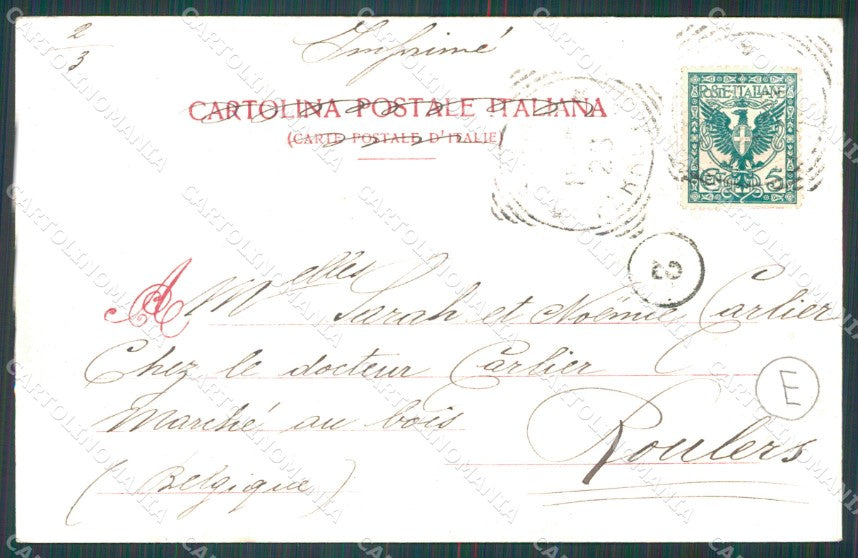 2/3
Imprimé
CARTOLINA POSTALE ITALIANA
(CARTE POSTALE D'ITALIE)
POSTE ITALIANE
C 5
23
A Melles Sarah et Noëmie Carlier
Chez le docteur Carlier
E
Marché au bois
Roulers
(Belgique)
CARTOLINOMANIA